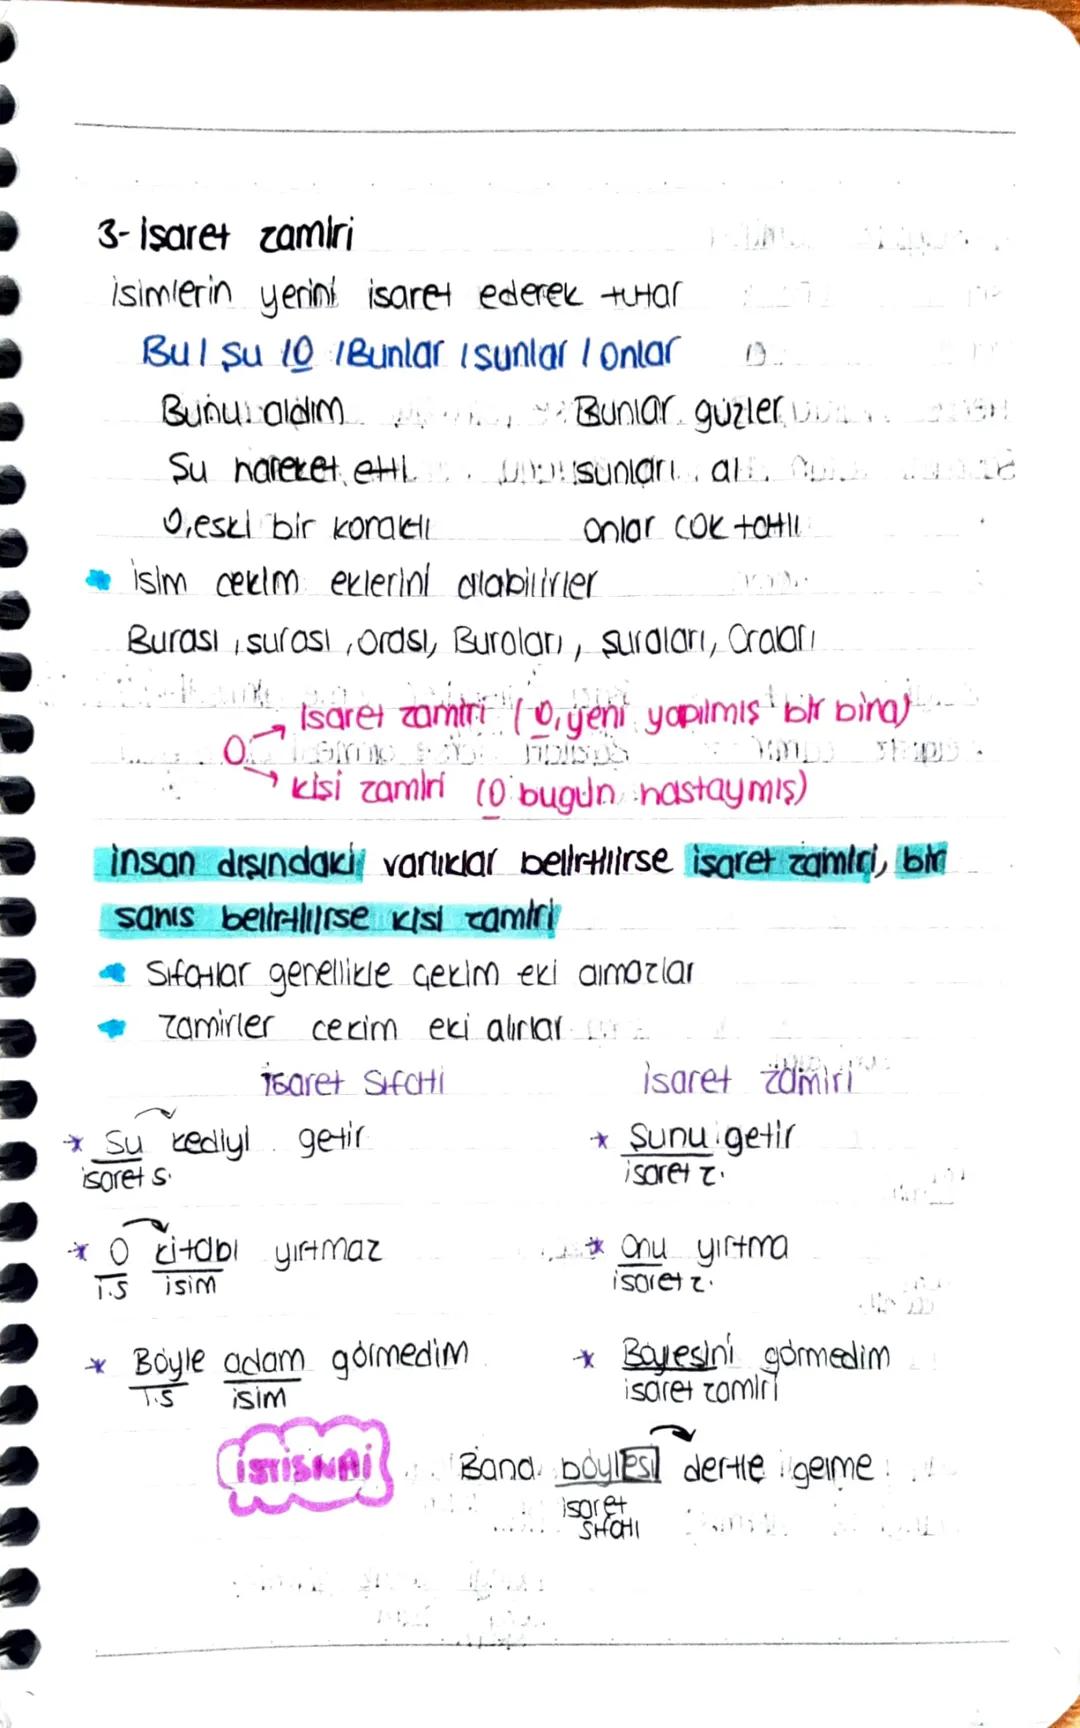 3- İsaret zamiri
isimlerin yerini isaret ederek tutar
Bu / şu / O / Bunlar / sunlar / onlar
Bunu aldım Bunlar guzler
Su hareket etti sunları al
O, eski bir konaktı onlar cok tatlı
isim cekim eklerini alabilirler
Burası, surası, orası, Buraları, şuraları, Oraları
O → İsaret zamiri (O, yeni yapılmış bir bina)
→ kişi zamiri (O bugün hastaymış)
insan dışındaki varlıklar belirtilirse isaret zamiri, bir
sahıs belirtilirse kisi zamiri
Sıfatlar genellikle çekim eki almazlar
Zamirler cekim eki alırlar
İsaret Sıfatı isaret zamiri
Su kediyi getir Şunu getir
isaret s. isaret z.
O kitabı yırtmaz Onu yırtma
İ.S isim isaret z.
Böyle adam görmedim Böylesini görmedim
İ.S isim isaret zamiri
İSTİSNAİ Bana böylesi dertle gelme
isaret
sıfatı